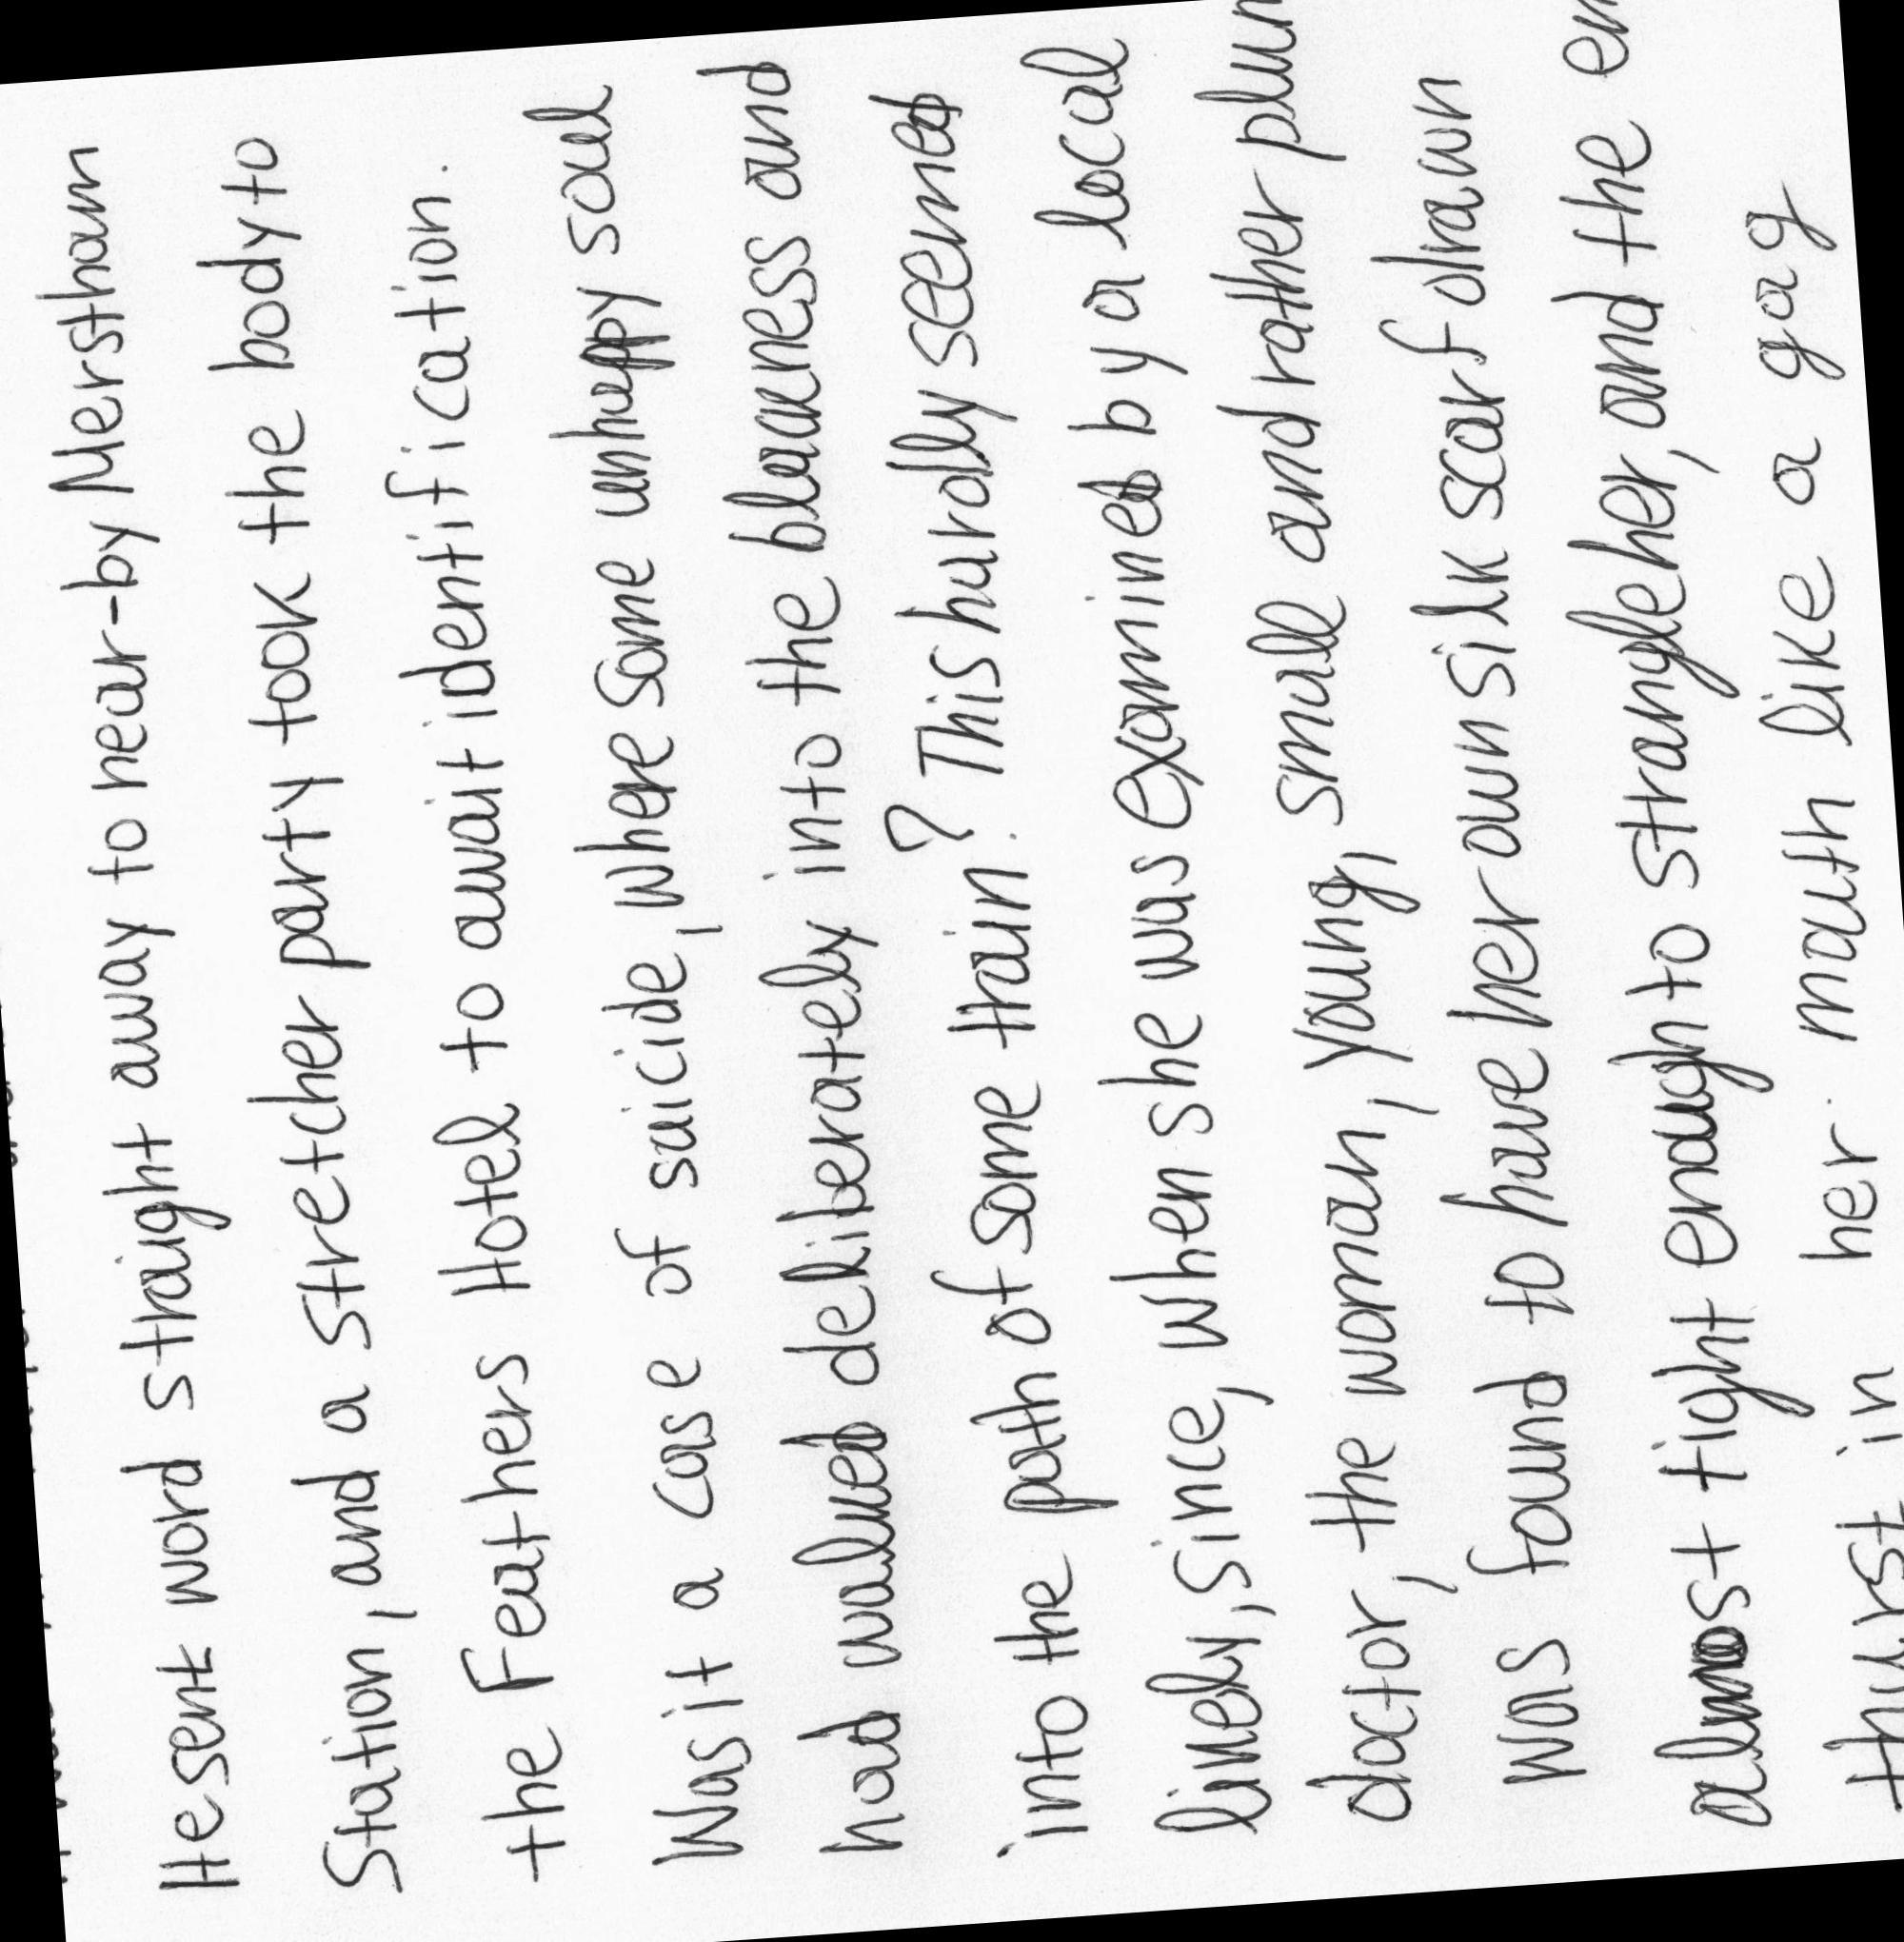 He sent word straight away to near-by Merstham
Station, and a stretcher party took the body to
the Feathers Hotel to await identification.
Was it a case of suicide, where some unhappy soul
had walked deliberately into the blackness and
into the path of some train? This hardly seemed
likely, since, when she was examined by a local
doctor, the woman, young, small and rather plum
was found to have her own silk scarf drawn
almost tight enough to strangle her, and the en
thurst in her mouth like a gag